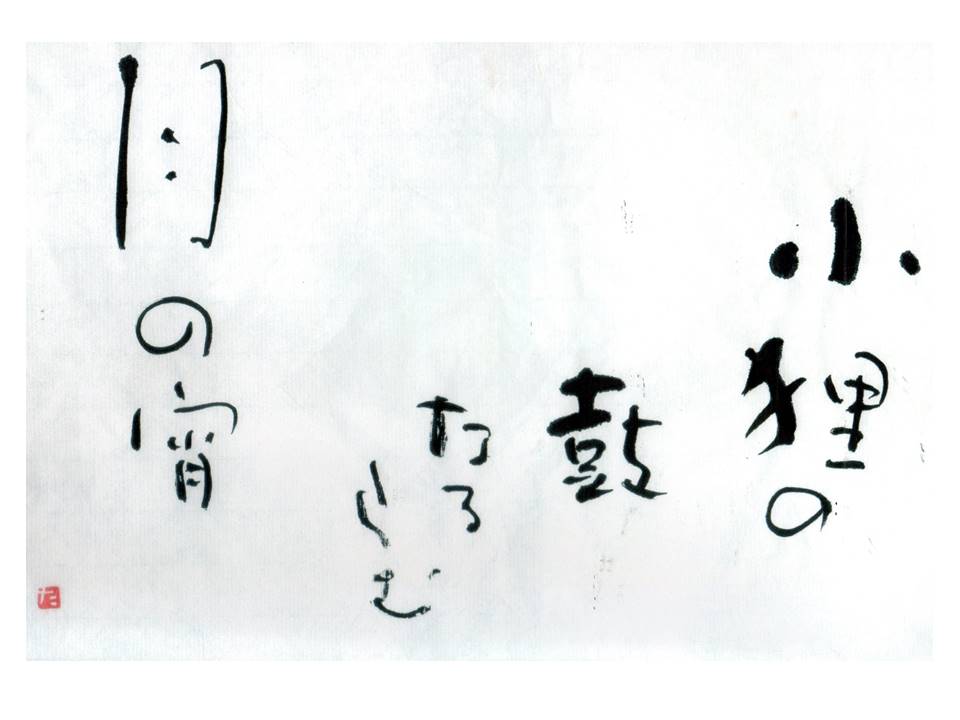 小狸の
鼓
なる
らむ
月の宵